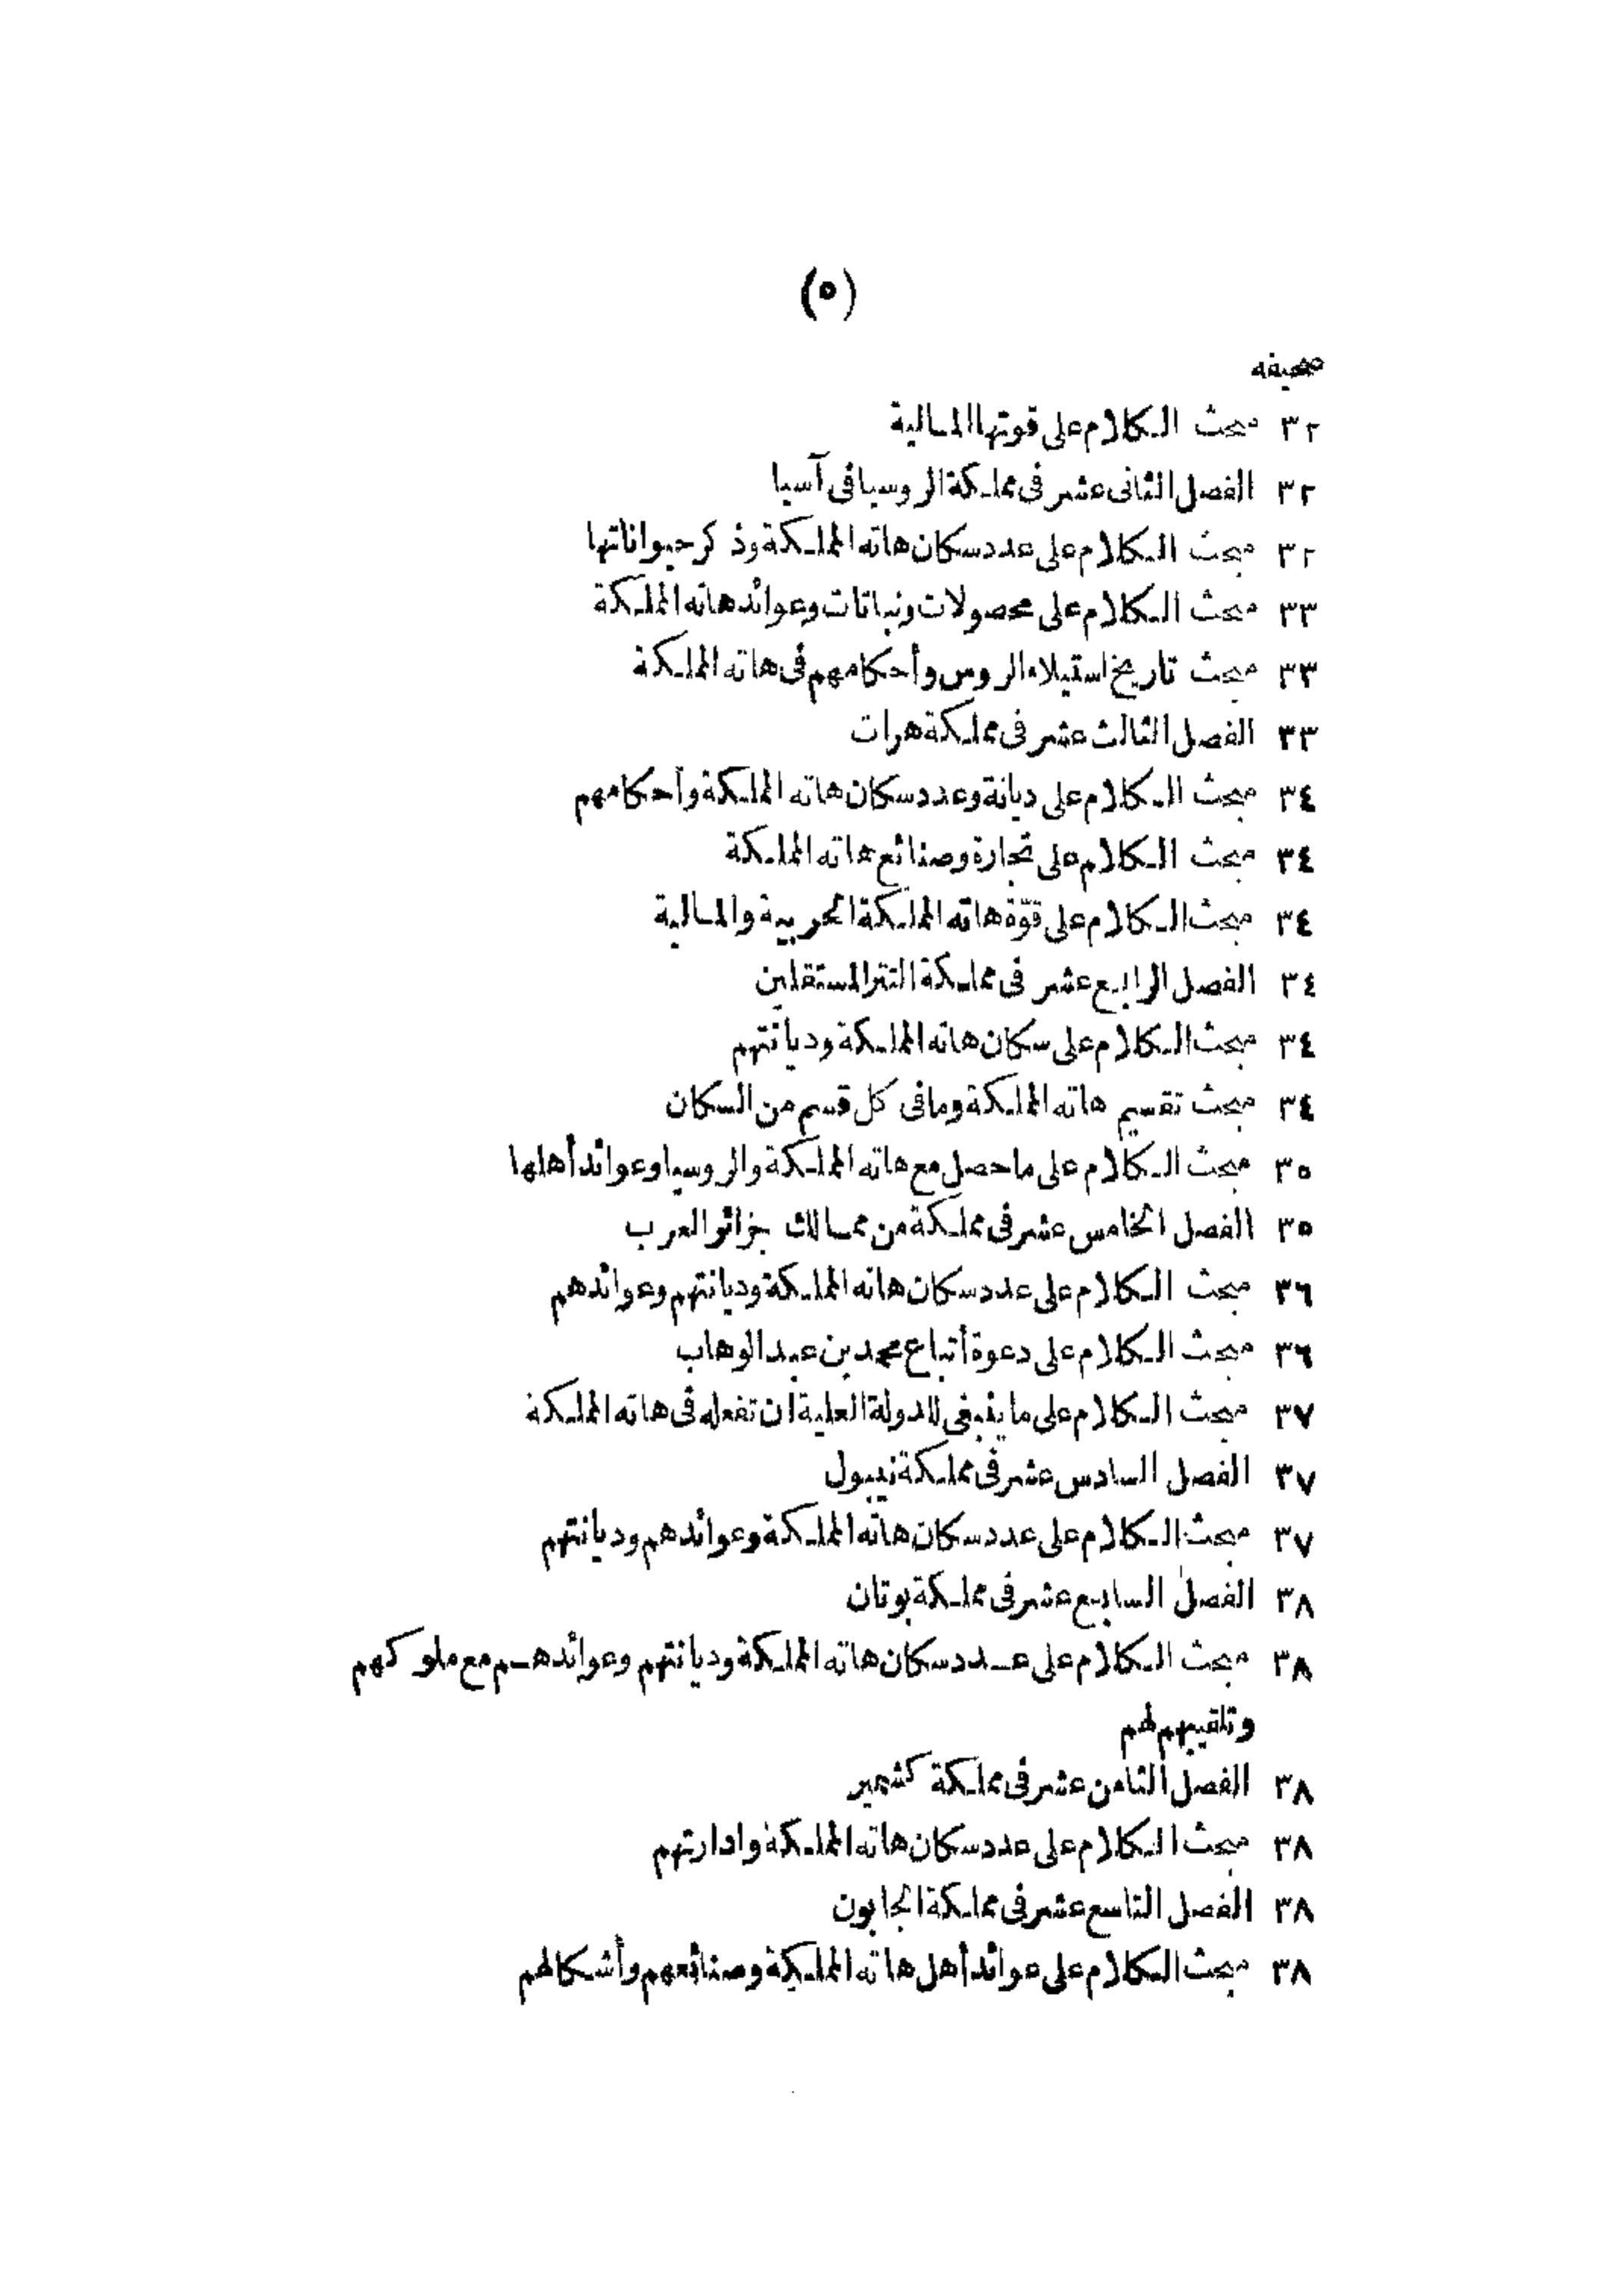 (٥)
صحيفه
٣٢ مبحث الكلام على قوتها المالية
٣٢ الفصل الثانى عشر فى مملكة الروسيا فى آسيا
٣٢ مبحث الكلام على عدد سكان هاته المملكة وذكر حيواناتها
٣٣ مبحث الكلام على محصولات ونباتات وعوائد هاته المملكة
٣٣ مبحث تاريخ استيلاء الروس وأحكامهم فى هاته المملكة
٣٣ الفصل الثالث عشر فى مملكة هرات
٣٤ مبحث الكلام على ديانة وعدد سكان هاته المملكة وأحكامهم
٣٤ مبحث الكلام على تجارة وصنائع هاته المملكة
٣٤ مبحث الكلام على قوّة هاته المملكة الحربية والمالية
٣٤ الفصل الرابع عشر فى مملكة التتر المستقلين
٣٤ مبحث الكلام على سكان هاته المملكة وديانتهم
٣٤ مبحث تقسيم هاته المملكة وما فى كل قسم من السكان
٣٥ مبحث الكلام على ما حصل مع هاته المملكة والروسيا وعوائد أهلها
٣٥ الفصل الخامس عشر فى مملكة من ممالك جزائر العرب
٣٦ مبحث الكلام على عدد سكان هاته المملكة وديانتهم وعوائدهم
٣٦ مبحث الكلام على دعوة أتباع محمد بن عبد الوهاب
٣٧ مبحث الكلام على ما ينبغى للدولة العلية ان تفعله فى هاته المملكة
٣٧ الفصل السادس عشر فى مملكة نيبول
٣٧ مبحث الكلام على عدد سكان هاته المملكة وعوائدهم وديانتهم
٣٨ الفصل السابع عشر فى مملكة بوتان
٣٨ مبحث الكلام على عدد سكان هاته المملكة وديانتهم وعوائدهم مع ملوكهم
وتلقيبهم لهم
٣٨ الفصل الثامن عشر فى مملكة كشمير
٣٨ مبحث الكلام على عدد سكان هاته المملكة وادارتهم
٣٨ الفصل التاسع عشر فى مملكة الجابون
٣٨ مبحث الكلام على عوائد أهل هاته المملكة وصنائعهم وأشكالهم